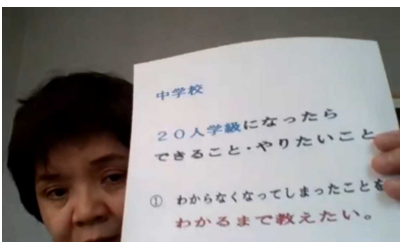 中学校
20人学級になったら
できること・やりたいこと
① わからなくなってしまったことを
わかるまで教えたい。